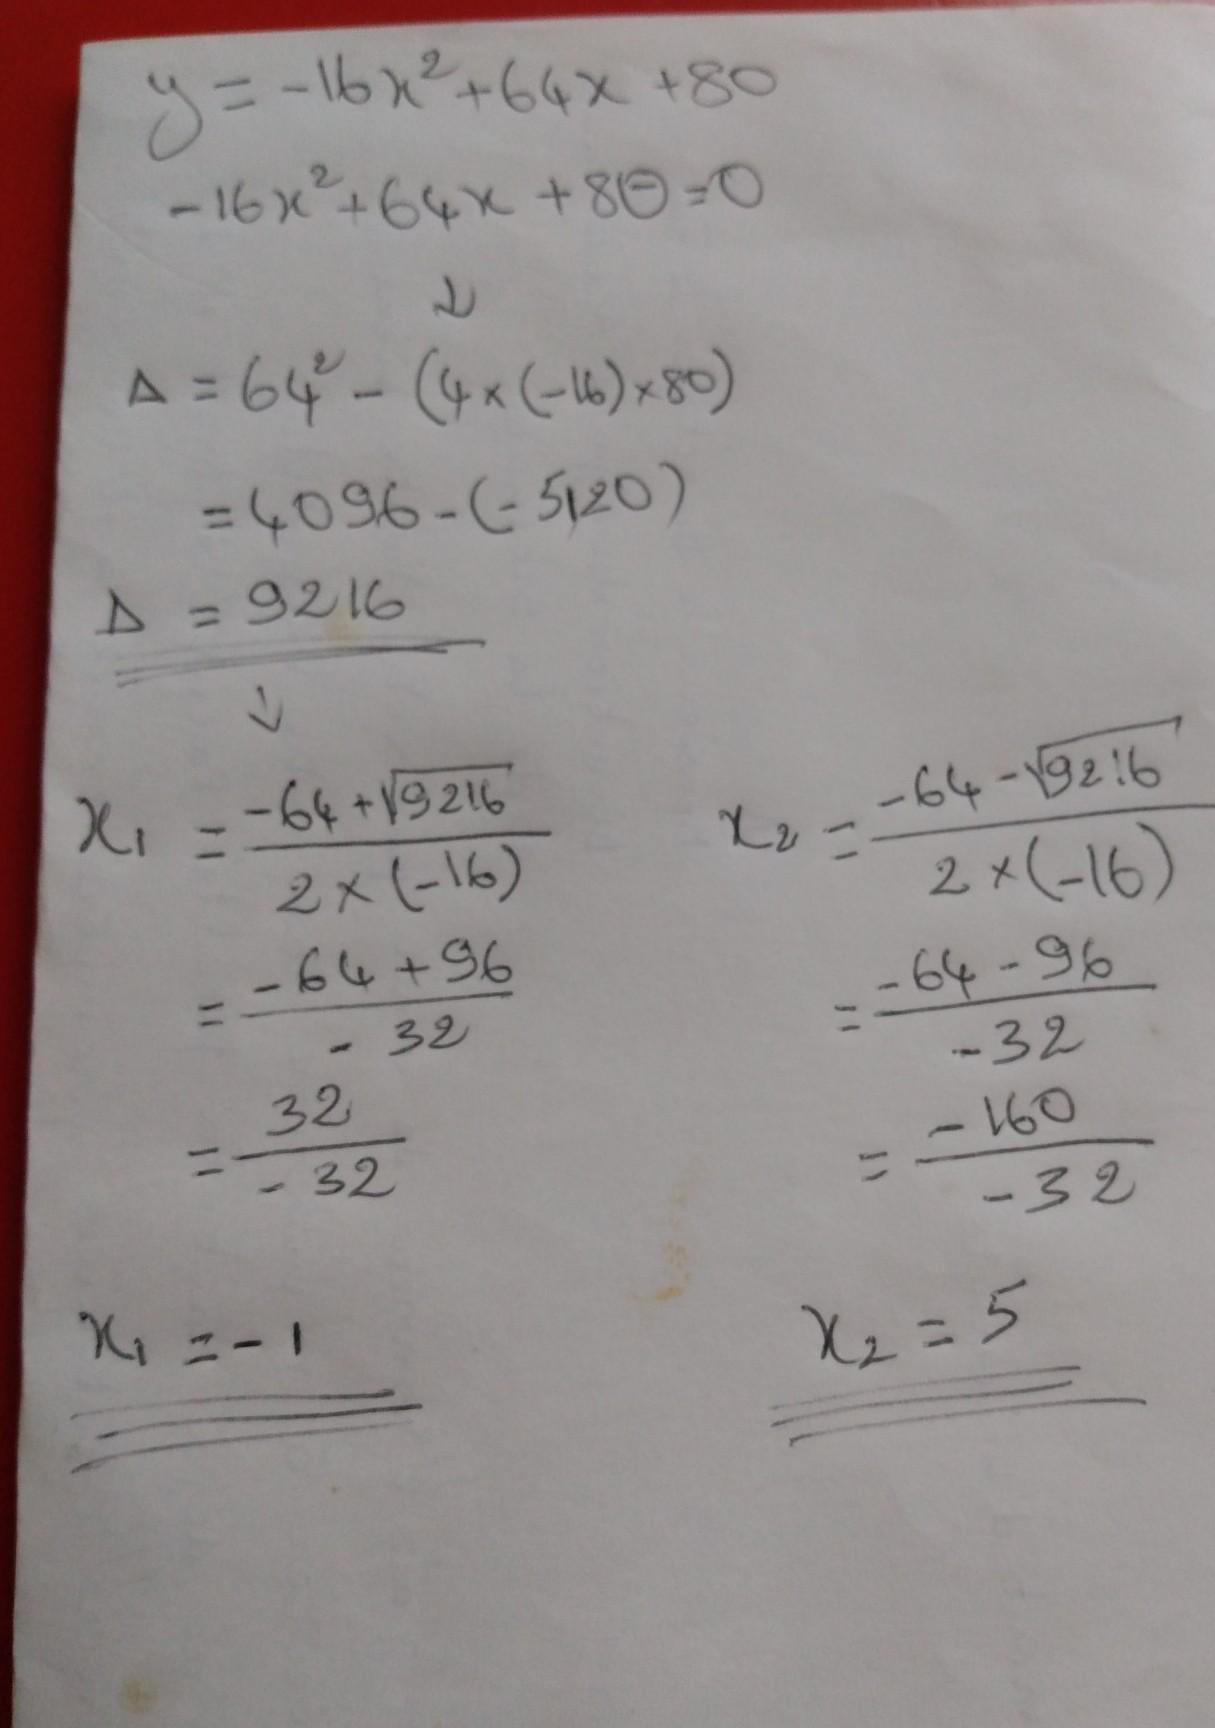 y = -16x² + 64x + 80
-16x² + 64x + 80 = 0
↓
Δ = 64² - (4 × (-16) × 80)
= 4096 - (-5120)
Δ = 9216
↓
x₁ = (-64 + √9216) / (2 × (-16))
= (-64 + 96) / -32
= 32 / -32
x₁ = -1
x₂ = (-64 - √9216) / (2 × (-16))
= (-64 - 96) / -32
= -160 / -32
x₂ = 5